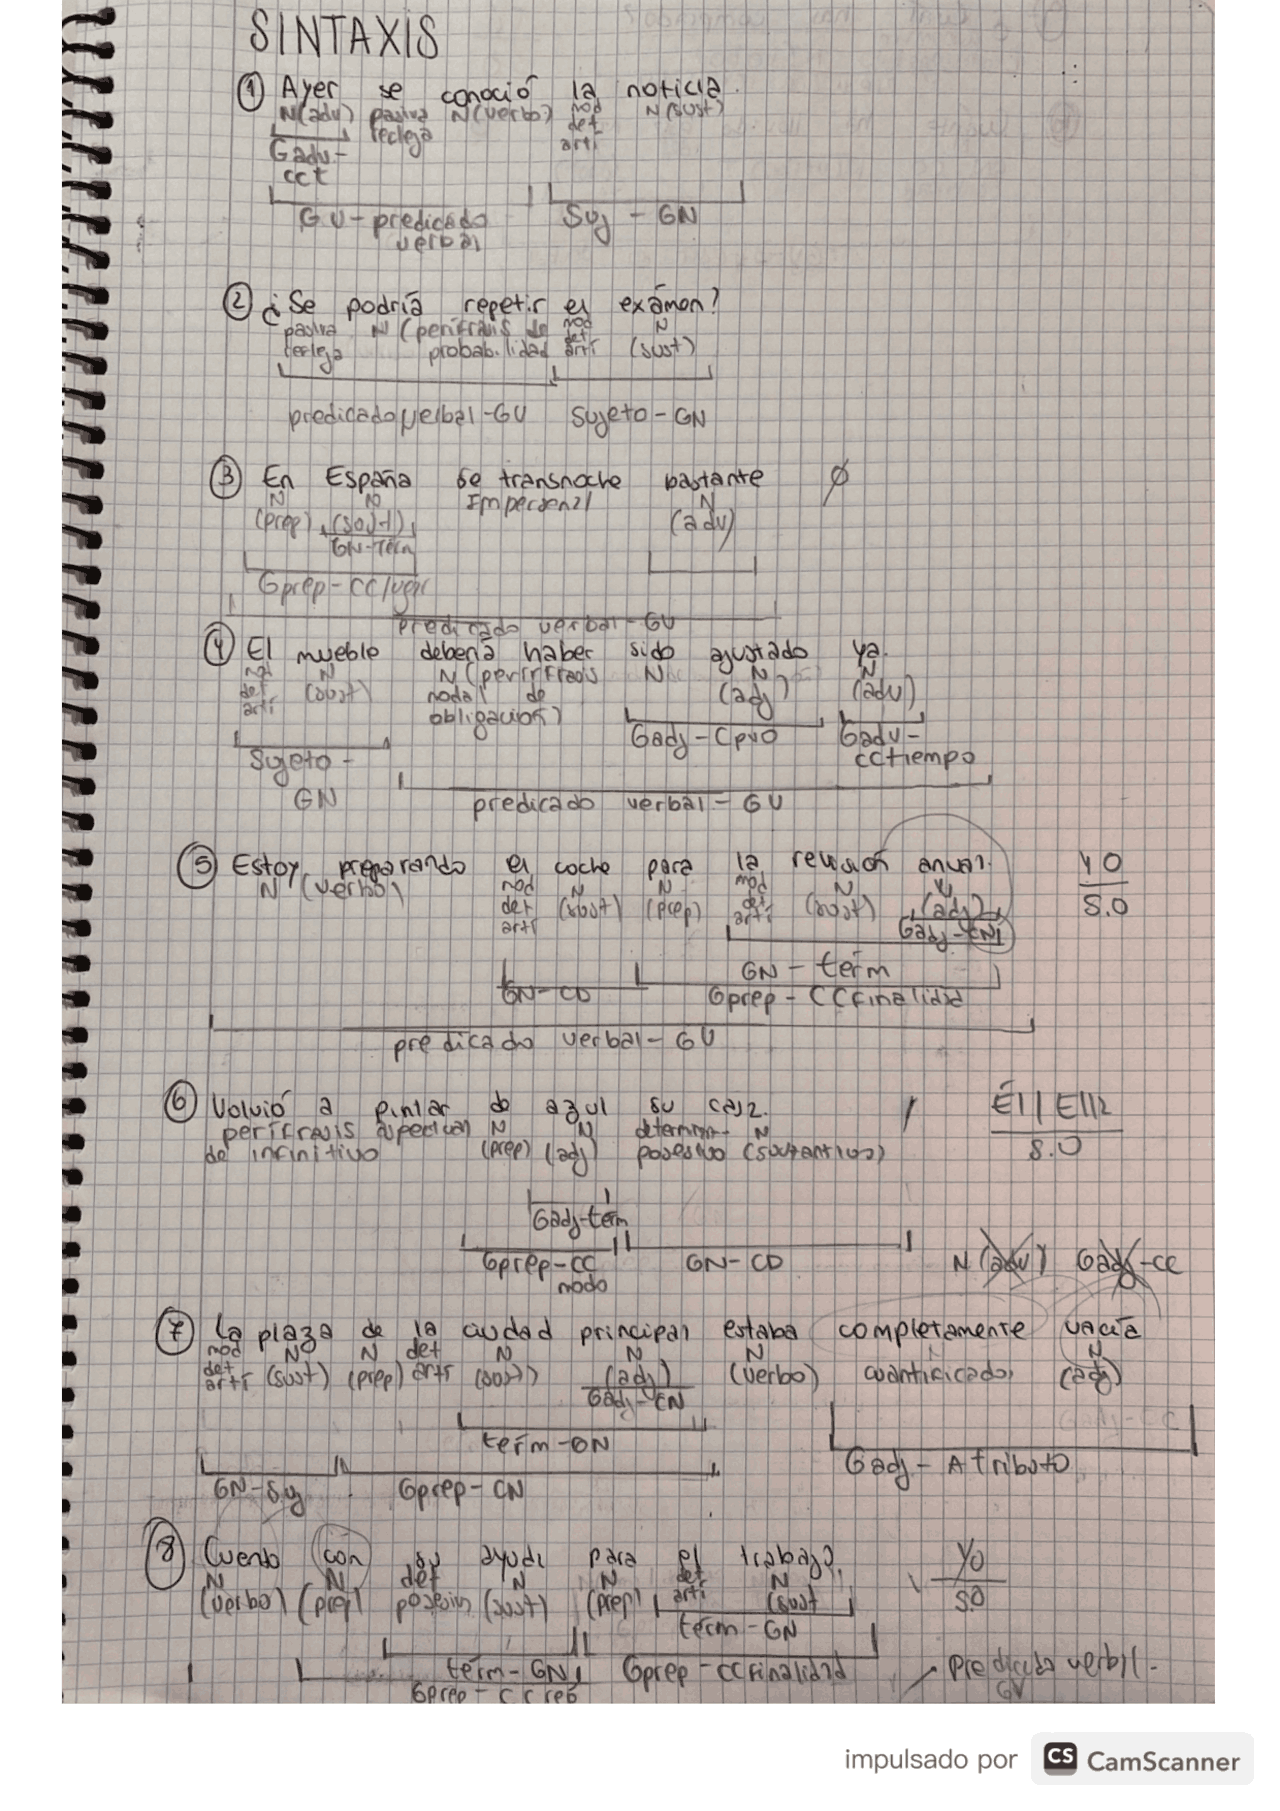 SINTAXIS
① Ayer se conoció la noticia.
N(adv) pasiva N(verbo) mod N(sust)
refleja det
arti
Gadv-
cct
GV-predicado Suj - GN
verbal
② ¿Se podría repetir el exámen?
pasiva N (perífrasis de mod N
refleja probabilidad det (sust)
arti
predicado verbal-GV Sujeto-GN
③ En España se transnoche bastante Ø
N N Impersonal N
(prep) (sust) (adv)
GN-Térm
Gprep-CClugar
predicado verbal-GV
④ El mueble debería haber sido ajustado ya.
mod N N (perífrasis N N N
det (sust) modal de (adj) (adv)
arti obligación)
Gadj-Cpvo Gadv-
Sujeto- cctiempo
GN predicado verbal-GV
⑤ Estoy preparando el coche para la revisión anual. YO
N (verbo) mod N N mod N N S.O
det (sust) (prep) det (sust) (adj)
arti arti Gadj-CN
GN-térm
GN-CD Gprep-CCfinalidad
predicado verbal-GV
⑥ Volvió a pintar de azul su casa. / Él/Ella
perífrasis aspectual N N determin- N S.O
de infinitivo (prep) (adj) posesivo (sustantivo)
Gadj-térm
Gprep-CC GN-CD N (adv) Gadj-CC
modo
⑦ La plaza de la ciudad principal estaba completamente vacía
mod N N det N N N N
det (sust) (prep) arti (sust) (adj) (verbo) cuantificador (adj)
arti Gadj-CN
term-GN
Gadj-Atributo
GN-Suj Gprep-CN
⑧ Cuento con su ayuda para el trabajo. YO
N N det N N det N S.O
(verbo) (prep) posesivo (sust) (prep) arti (sust
term-GN
term-GN Gprep-CCfinalidad predicado verbal-
Gprep-CCreg GV
impulsado por CS CamScanner